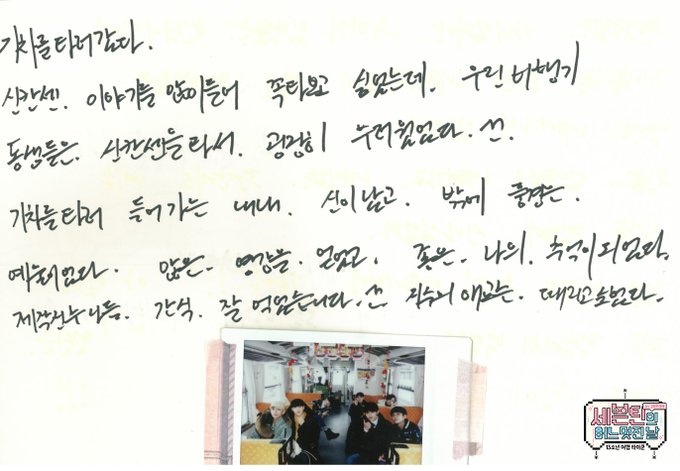 기차를 타러 갔다.
신칸센. 이야기를 많이 들어 꼭 타보고 싶었는데. 우린 비행기
동생들은. 신칸센을 타서. 굉장히 부러웠었다.
기차를 타러 들어가는 내내. 신이 났고. 밖에 풍경은.
예술이었다. 많은. 영감을. 얻었고. 좋은. 나의. 추억이 되었다.
제작진누나들. 간식. 잘 먹었습니다. 지수의 애교는. 때리고 싶었다.
세븐틴의
어느 멋진 날
13소년 여행 타이쿤